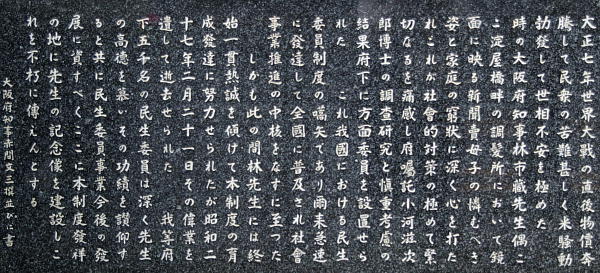 大正七年世界大戰の直後物價奔
騰して民衆の苦難甚しく米騒動
勃發して世相不安を極めた
時の大阪府知事林市藏先生偶こ
こ淀屋橋畔の調髪所において鏡
面に映る新聞賣母子の憐むべき
姿と家庭の窮狀に深く心を打た
れこれが社会的対策の極めて緊
切なるを痛感し府囑託小河滋次
郎博士の調査研究と愼重考慮の
結果府下に方面委員を設置せら
れた これ我國における民生
委員制度の嚆矢であり爾来急速
に發達して全國に普及され社會
事業推進の中核をなすに至つた
しかも此の間林先生には終
始一貫熱誠を傾けて本制度の育
成發達に努力せられたが昭和二
十七年二月二十一日その偉業を
遺して逝去せられた 我等府
下五千名の民生委員は深く先生
の高徳を慕いその功績を讃仰す
ると共に民生委員事業今後の發
展に資すべくここに本制度發祥
の地に先生の記念像を建設しこ
れを不朽に傳えんとする
大阪府知事赤間文三撰並びに書